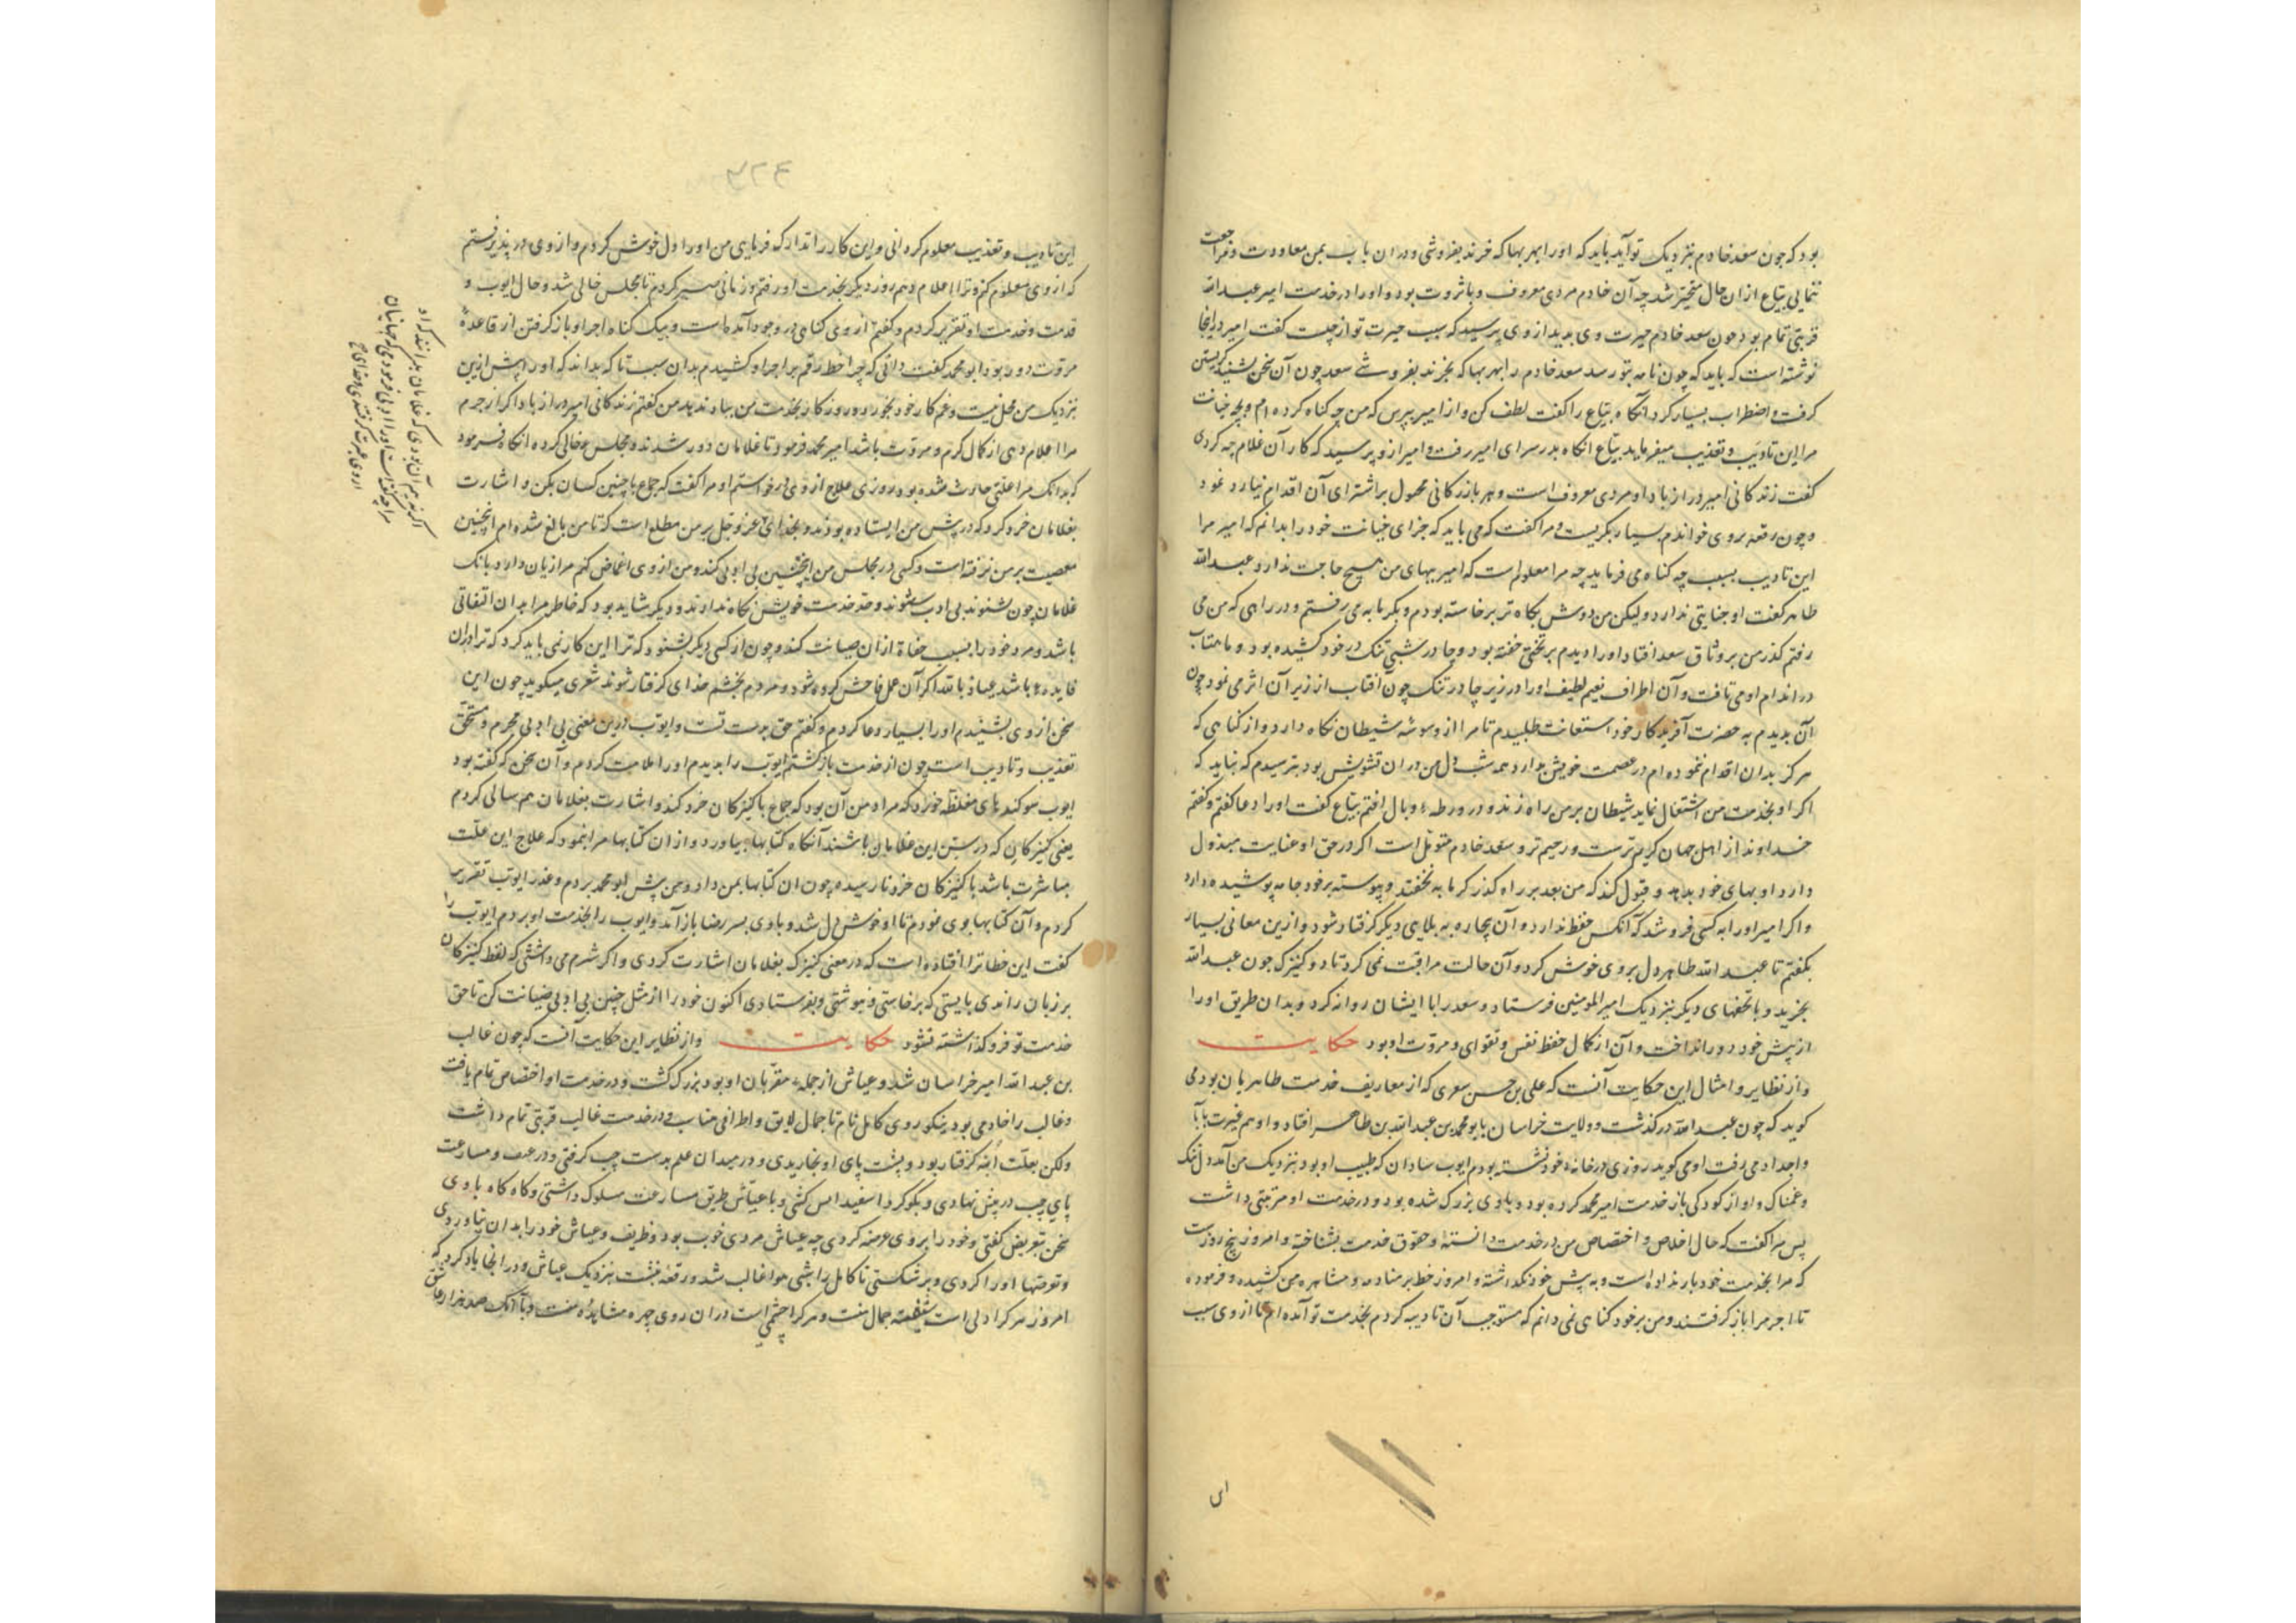 بود که چون سعد خادم بنزدیک تو آید باید که او را بهر بها که خرند بفروشی و دران باب بمن معاودت و مراجعت
ننمایی بیاع ازان حال متحیر شد چه آن خادم مردی معروف و با ثروت بود و او را در خدمت امیر عبد الله
قربتی تمام بود چون سعد خادم حیرت وی بدید از وی پرسید که سبب حیرت تو از چیست گفت امیر در اینجا
نوشته است که باید که چون نامه بتو رسد سعد خادم را بهر بها که بخرند بفروشی سعد چون آن سخن بشنید گریستن
گرفت و اضطراب بسیار کرد آنگاه بیاع را گفت لطف کن و از امیر بپرس که من چه گناه کرده ام و بچه خیانت
مرا این تادیب و تعذیب میفرماید بیاع انگاه بدر سرای امیر رفت و امیر ازو پرسید که کار آن غلام چه کردی
گفت زندگانی امیر دراز باد او مردی معروف است و هر بازرگانی مجهول بر اشترای آن اقدام نیارد نمود
و چون رقعه بروی خواندم بسیار بگریست و مرا گفت که می باید که جزای خیانت خود را بدانم که امیر مرا
این تادیب بسبب چه گناه می فرماید چه مرا معلوم است که امیر ببهای من هیچ حاجت ندارد عبد الله
طاهر گفت او جنایتی ندارد ولیکن من دوش بگاه تر برخاسته بودم و بگرمابه می رفتم و در راهی که من می
رفتم گذر من بر وثاق سعد افتاد او را دیدم بر تختی خفته بود و چادر شبی تنک در خود کشیده بود و ماهتاب
در اندام او می تافت و آن اطراف نعیم لطیف او را در زیر چادر تنک چون آفتاب از زیر آن اثر می نمود چون
آن بدیدم به حضرت آفریدگار خود استعانت طلبیدم تا مرا از وسوسه شیطان نگاه دارد و از گناهی که
هرگز بدان اقدام ننموده ام در عصمت خویش بدارد همه شب دل من دران تشویش بود بترسیدم که نباید که
اگر او بخدمت من اشتغال نماید شیطان بر من راه زند و در ورطه وبال افتم بیاع گفت او را دعا گفتم و گفتم
خداوند از اهل جهان کریم ترست و رحیم تر و سعد خادم متوسل است اگر در حق او عنایت مبذول
دارد او بهای خود بدهد و قبول کند که من بعد بر راه گذر گرمابه نخفتد و پیوسته بر خود جامه پوشیده دارد
و اگر امیر او را به کسی فروشد که آنکس حفظ ندارد و آن بیچاره به بلایی دیگر گرفتار شود و ازین معانی بسیار
بگفتم تا عبد الله طاهر دل بروی خوش کرد و آن حالت مراقبت نمی کرد تا دو کنیزک چون عبد الله
بخرید و با تحفهای دیگر بنزدیک امیر المومنین فرستاد و سعد را با ایشان روانه کرد و بدان طریق او را
از پیش خود دور انداخت و آن از کمال حفظ نفس و تقوای و مروت او بود حکایت
و از نظایر و امثال این حکایت آنست که علی بن حسن سعری که از معاریف خدمت طاهریان بود می
گوید که چون عبد الله درگذشت و ولایت خراسان بابو محمد بن عبد الله بن طاهر افتاد و او هم بسیرت آبا
و اجداد می رفت او می گوید روزی در خانه خود نشسته بودم ایوب سادان که طبیب او بود بنزدیک من آمد دل تنگ
و غمناک و او از کودکی باز خدمت امیر محمد کرده بود و با وی بزرگ شده بود و در خدمت او مرتبتی داشت
پس مرا گفت که حال اخلاص و اختصاص من در خدمت دانسته و حقوق خدمت شناخته و امروز پنج روزست
که مرا بخدمت خود بار نداده است و به پیش خود نگذاشته و امروز خط بر منادمه و مشاهره من کشیده و فرموده
تا اجر مرا باز گرفتند و من بر خود گناهی نمی دانم که مستوجب آن تادیب گردم بخدمت تو آمده ام تا از وی سبب
ای
این تادیب و تعذیب معلوم گردانی و این کار را تدارک فرمایی من او را دل خوش کردم و از وی در پذیرفتم
که از وی معلوم کنم و ترا اعلام دهم روز دیگر بخدمت او رفتم و زمانی صبر کردم تا مجلس خالی شد و حال ایوب و
قدمت و خدمت او تقریر کردم و گفتم از وی گناهی در وجود آمده است و بیک گناه اجر او باز گرفتن از قاعده
مروت دور بود ابو محمد گفت دانی که چرا خط رقم بر اجر او کشیدم بدان سبب تا که بداند که او را پیش ازین
بنزدیک من محل نیست و غم کار خود بخورد و روزگار بخدمت من بباد ندهد من گفتم زندگانی امیر دراز باد اگر از جرم
مرا اعلام دهی از کمال کرم و مروت باشد امیر محمد فرمود تا غلامان دور شدند و مجلس خالی کرده انگاه فرمود
که بدانک مرا علتی حادث شده بود روزی علاج از وی درخواستم او مرا گفت که جماع با چنین کسان بکن و اشارت
بغلامان خرد کرد که در پیش من ایستاده بودند و بخدای عز و جل بر من مطلع است که تا من بالغ شده ام اینچنین
معصیت بر من نرفته است و کسی در مجلس من اینچنین بی ادبی کند و من از وی اغماض کنم مرا زیان دارد بانک
غلامان چون بشنوند بی ادب شوند و حد خدمت خویش نگاه ندارند و دیگر شاید بود که خاطر مرا بدان التفاتی
باشد و مرد خود را بسبب حفاظ ازان صیانت کند و چون از کسی دیگر بشنود که ترا این کار نمی باید کرد که ترا دران
فایده باشد عیاذ بالله اگر آن عمل فاحش کرده شود و مردم بخشم خدای گرفتار شوند شعری میگوید چون این
سخن از وی بشنیدم او را بسیار دعا کردم و گفتم حق بدست تست و ایوب درین معنی بی ادبی مجرم و مستحق
تعذیب و تادیب است چون از خدمت بازگشتم ایوب را بدیدم او را ملامت کردم و آن سخن که گفته بود
ایوب سوگندهای مغلظه خورد که مراد من آن بود که جماع با کنیزکان خرد کند و اشارت بغلامان هم سالی کردم
یعنی کنیزکان که در سن این غلامان باشند آنگاه کتابها بیاورد و از ان کتابها مرا بنمود که علاج این علت
مباشرت باشد با کنیزکان خرد نارسیده چون ان کتابها بمن داد من پیش ابو محمد بردم و عذر ایوب تقریر
کردم و آن کتابها بوی نمودم تا او خوش دل شد و با وی بسر رضا باز آمد و ایوب را بخدمت او بردم ایوب را
گفت این خطا ترا افتاده است که در معنی کنیزک بغلامان اشارت کردی و اگر شرم می داشتی که لفظ کنیزکان
بر زبان راندی بایستی که برخاستی و نبوشتی و بفرستادی اکنون خود را از مثل چنین بی ادبی صیانت کن تا حق
خدمت تو فرو گذاشته نشود حکایت و از نظایر این حکایت آنست که چون غالب
بن عبد الله امیر خراسان شد و عیاش از جمله مقربان او بود بزرگ گشت و در خدمت او اختصاص تمام یافت
و غالب را خادمی بود نیکو روی کامل نام تا جمال لایق و اطرافی مناسب و در خدمت غالب قربتی تمام داشت
ولکن بعلت ابنه گرفتار بود و پشت پای او بخاریدی و در میدان علم بدست چپ گرفتی و در عنف و مسارعت
پای چپ در پیش نهادی و بگوگرد اسفید امس کشی و با عیاش طریق مسارعت سلوک داشتی و گاه گاه با وی
سخن بتعریض گفتی و خود را بروی عرضه کردی چه عیاش مردی خوب بود و ظریف و عیاش خود را بدان نیاوردی
و تعرضها او را کردی و بر شکستی تا کامل را شبی هوا غالب شد و رقعه نبشت بنزدیک عیاش و در انجا یاد کرد که
امروز هر کرا دلی است شیفته جمال منست و هر کرا چشمی است دران روی چهره مشاهده منست و با آنک صد هزار عاشق
اگر نه بهر آن بودی که غلامان بدانند که او
مرا چه گفته است او را ادبی فرمودی که جهانیان
از وی عبرت گرفتندی و خدای